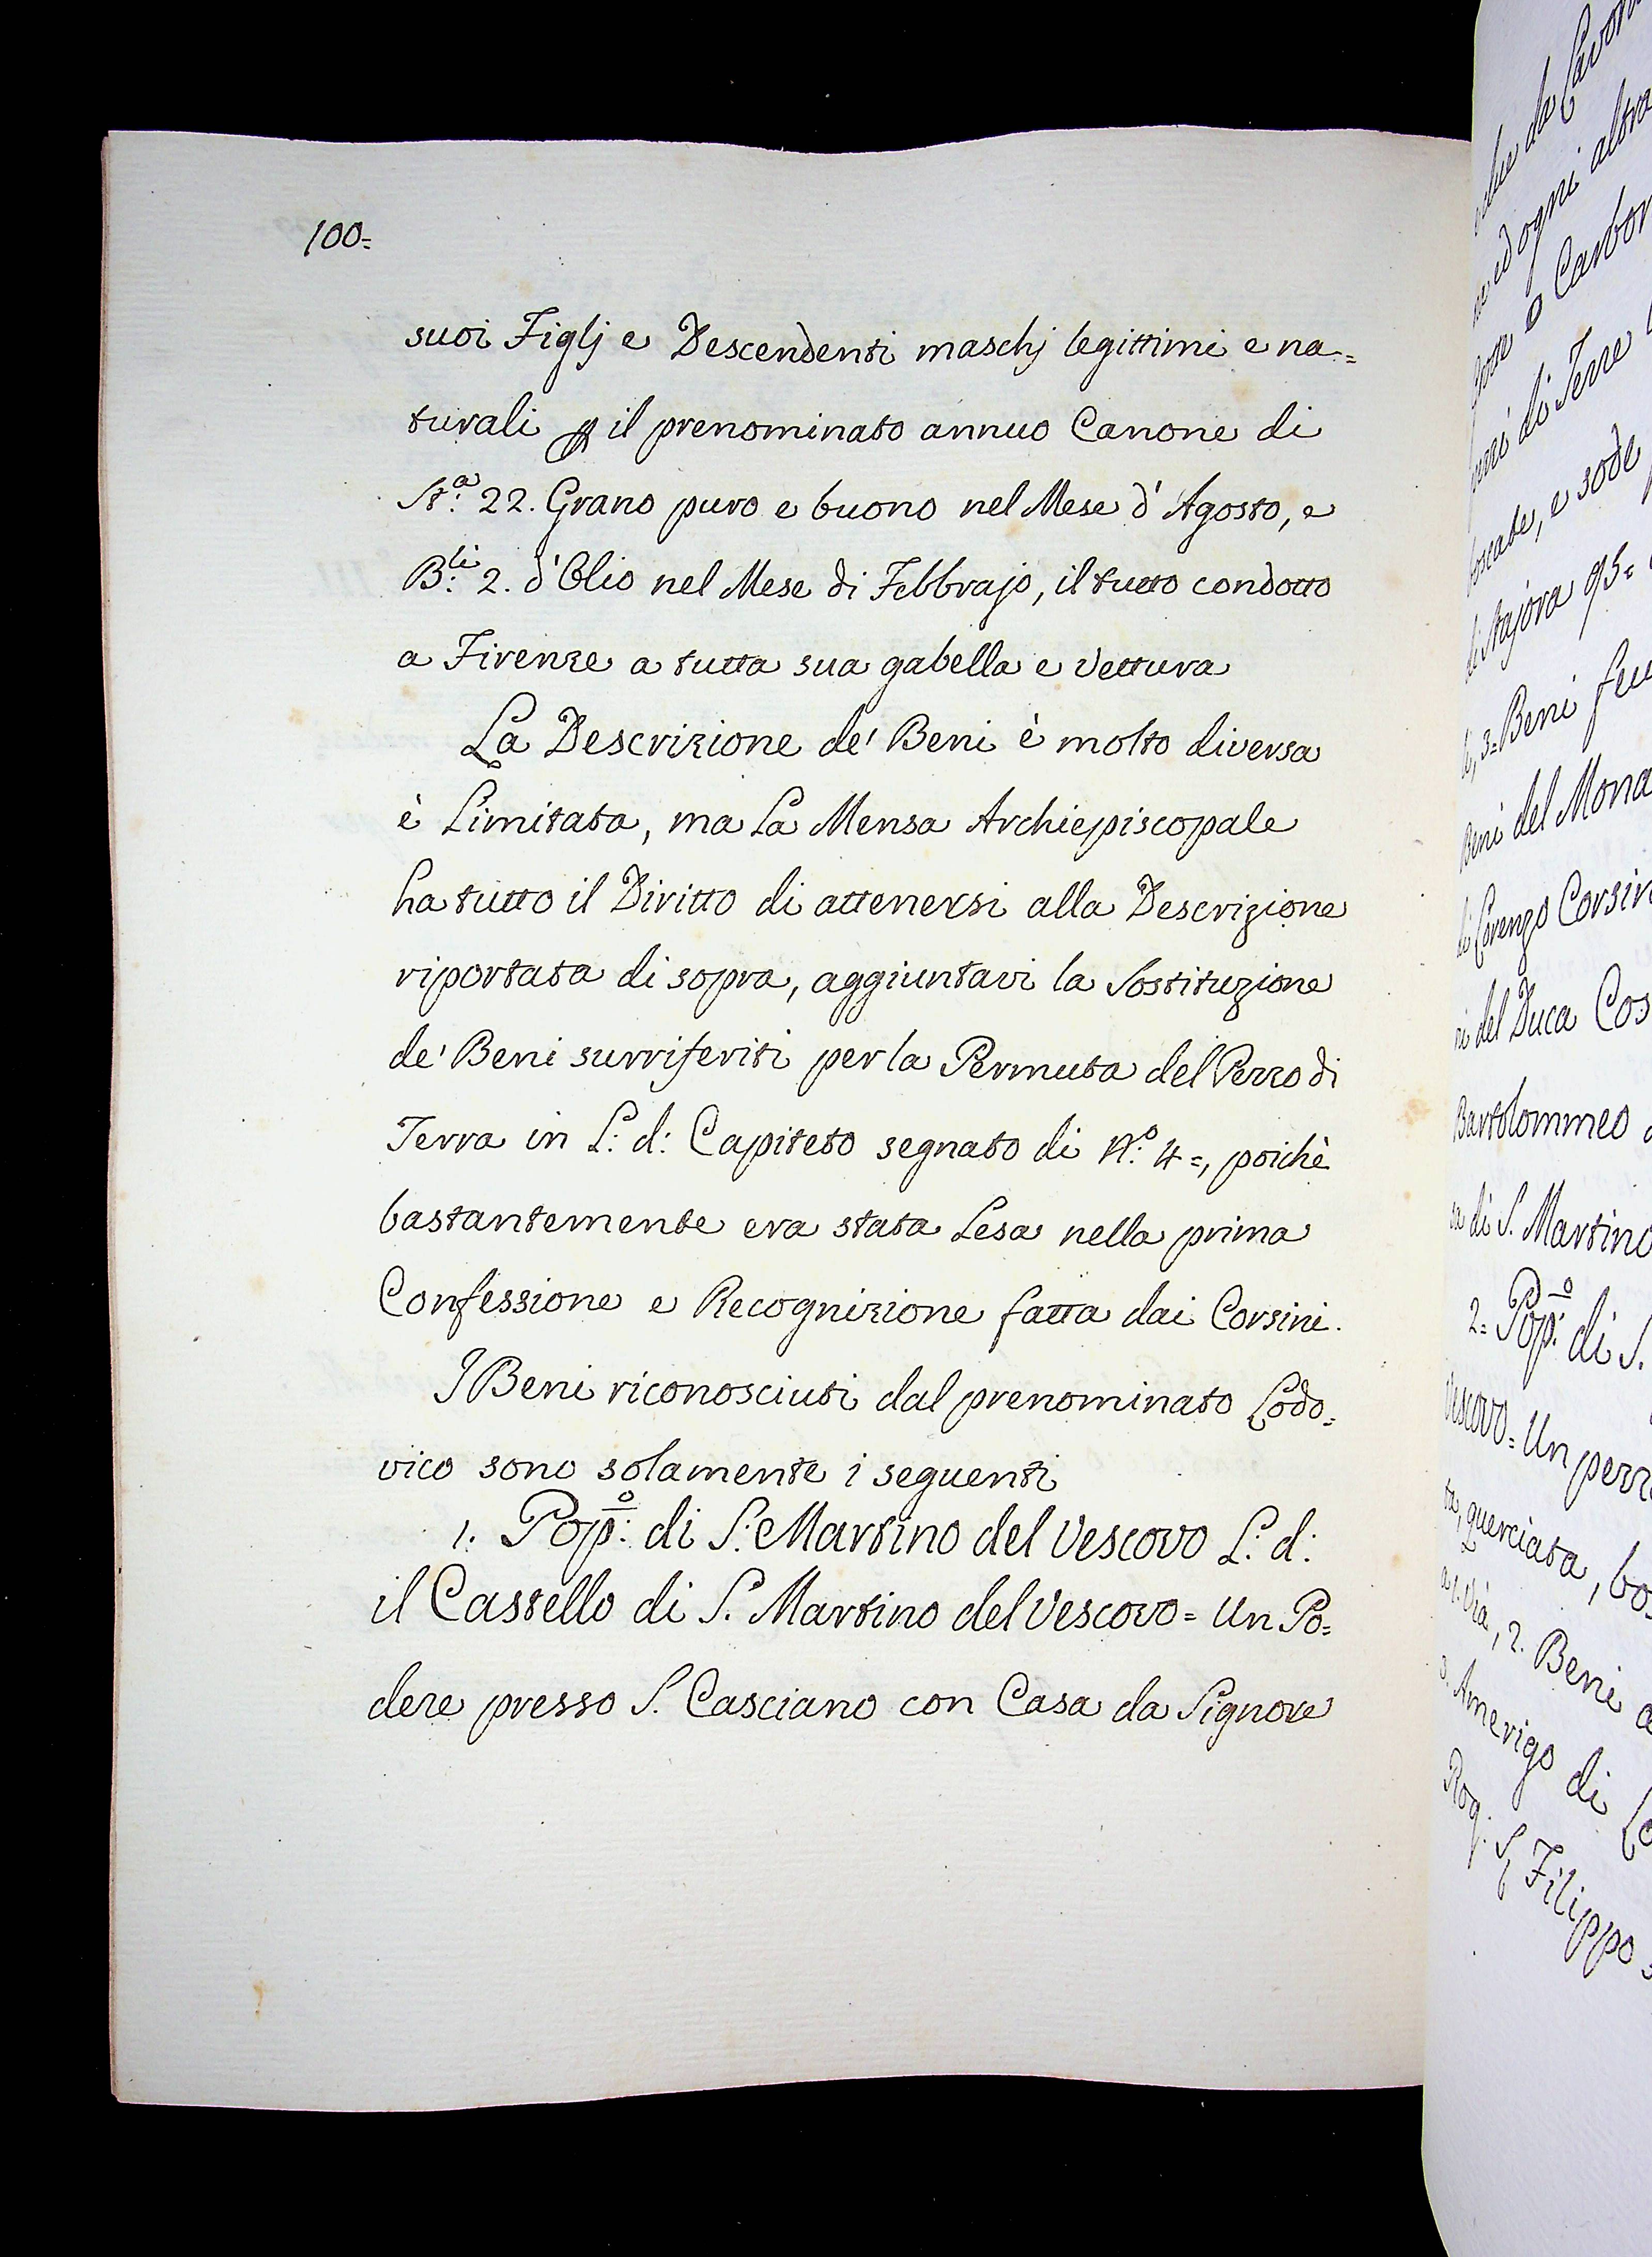 100=
suoi Figlj e Descendenti maschj legittimi e na=
turali il prenominato annuo Canone di
St.ª 22. Grano puro e buono nel Mese d'Agosto, e
B.li 2. d'Olio nel Mese di Febbrajo, il tutto condotto
a Firenze a tutta sua gabella e vettura
La Descrizione de' Beni è molto diversa
è Limitata, ma La Mensa Archiepiscopale
ha tutto il Diritto di attenersi alla Descrizione
riportata di sopra, aggiuntavi la Sostituzione
de' Beni surriferiti per la Permuta del Pezzo di
Terra in L: d: Capiteto segnato di N.º 4=, poichè
bastantemente era stata Lesa nella prima
Confessione e Recognizione fatta dai Corsini.
I Beni riconosciuti dal prenominato Lodo=
vico sono solamente i seguenti
1. Pop:º di S. Martino del Vescovo L: d:
il Castello di S. Martino del Vescovo= Un Po=
dere presso S. Casciano con Casa da Signore
ed ogni altra
o Carbon
di Terre
boscate, e sode
di stajora 95=
3= Beni
Beni del Mona
di Lorenzo Corsin
del Duca Cos
Bartolommeo
di S. Martino
2= Pop:º di S.
Vescovo= Un pezz
querciata, bo
a 1. Via, 2. Beni
3. Amerigo di Lo
Rog: S Filippo